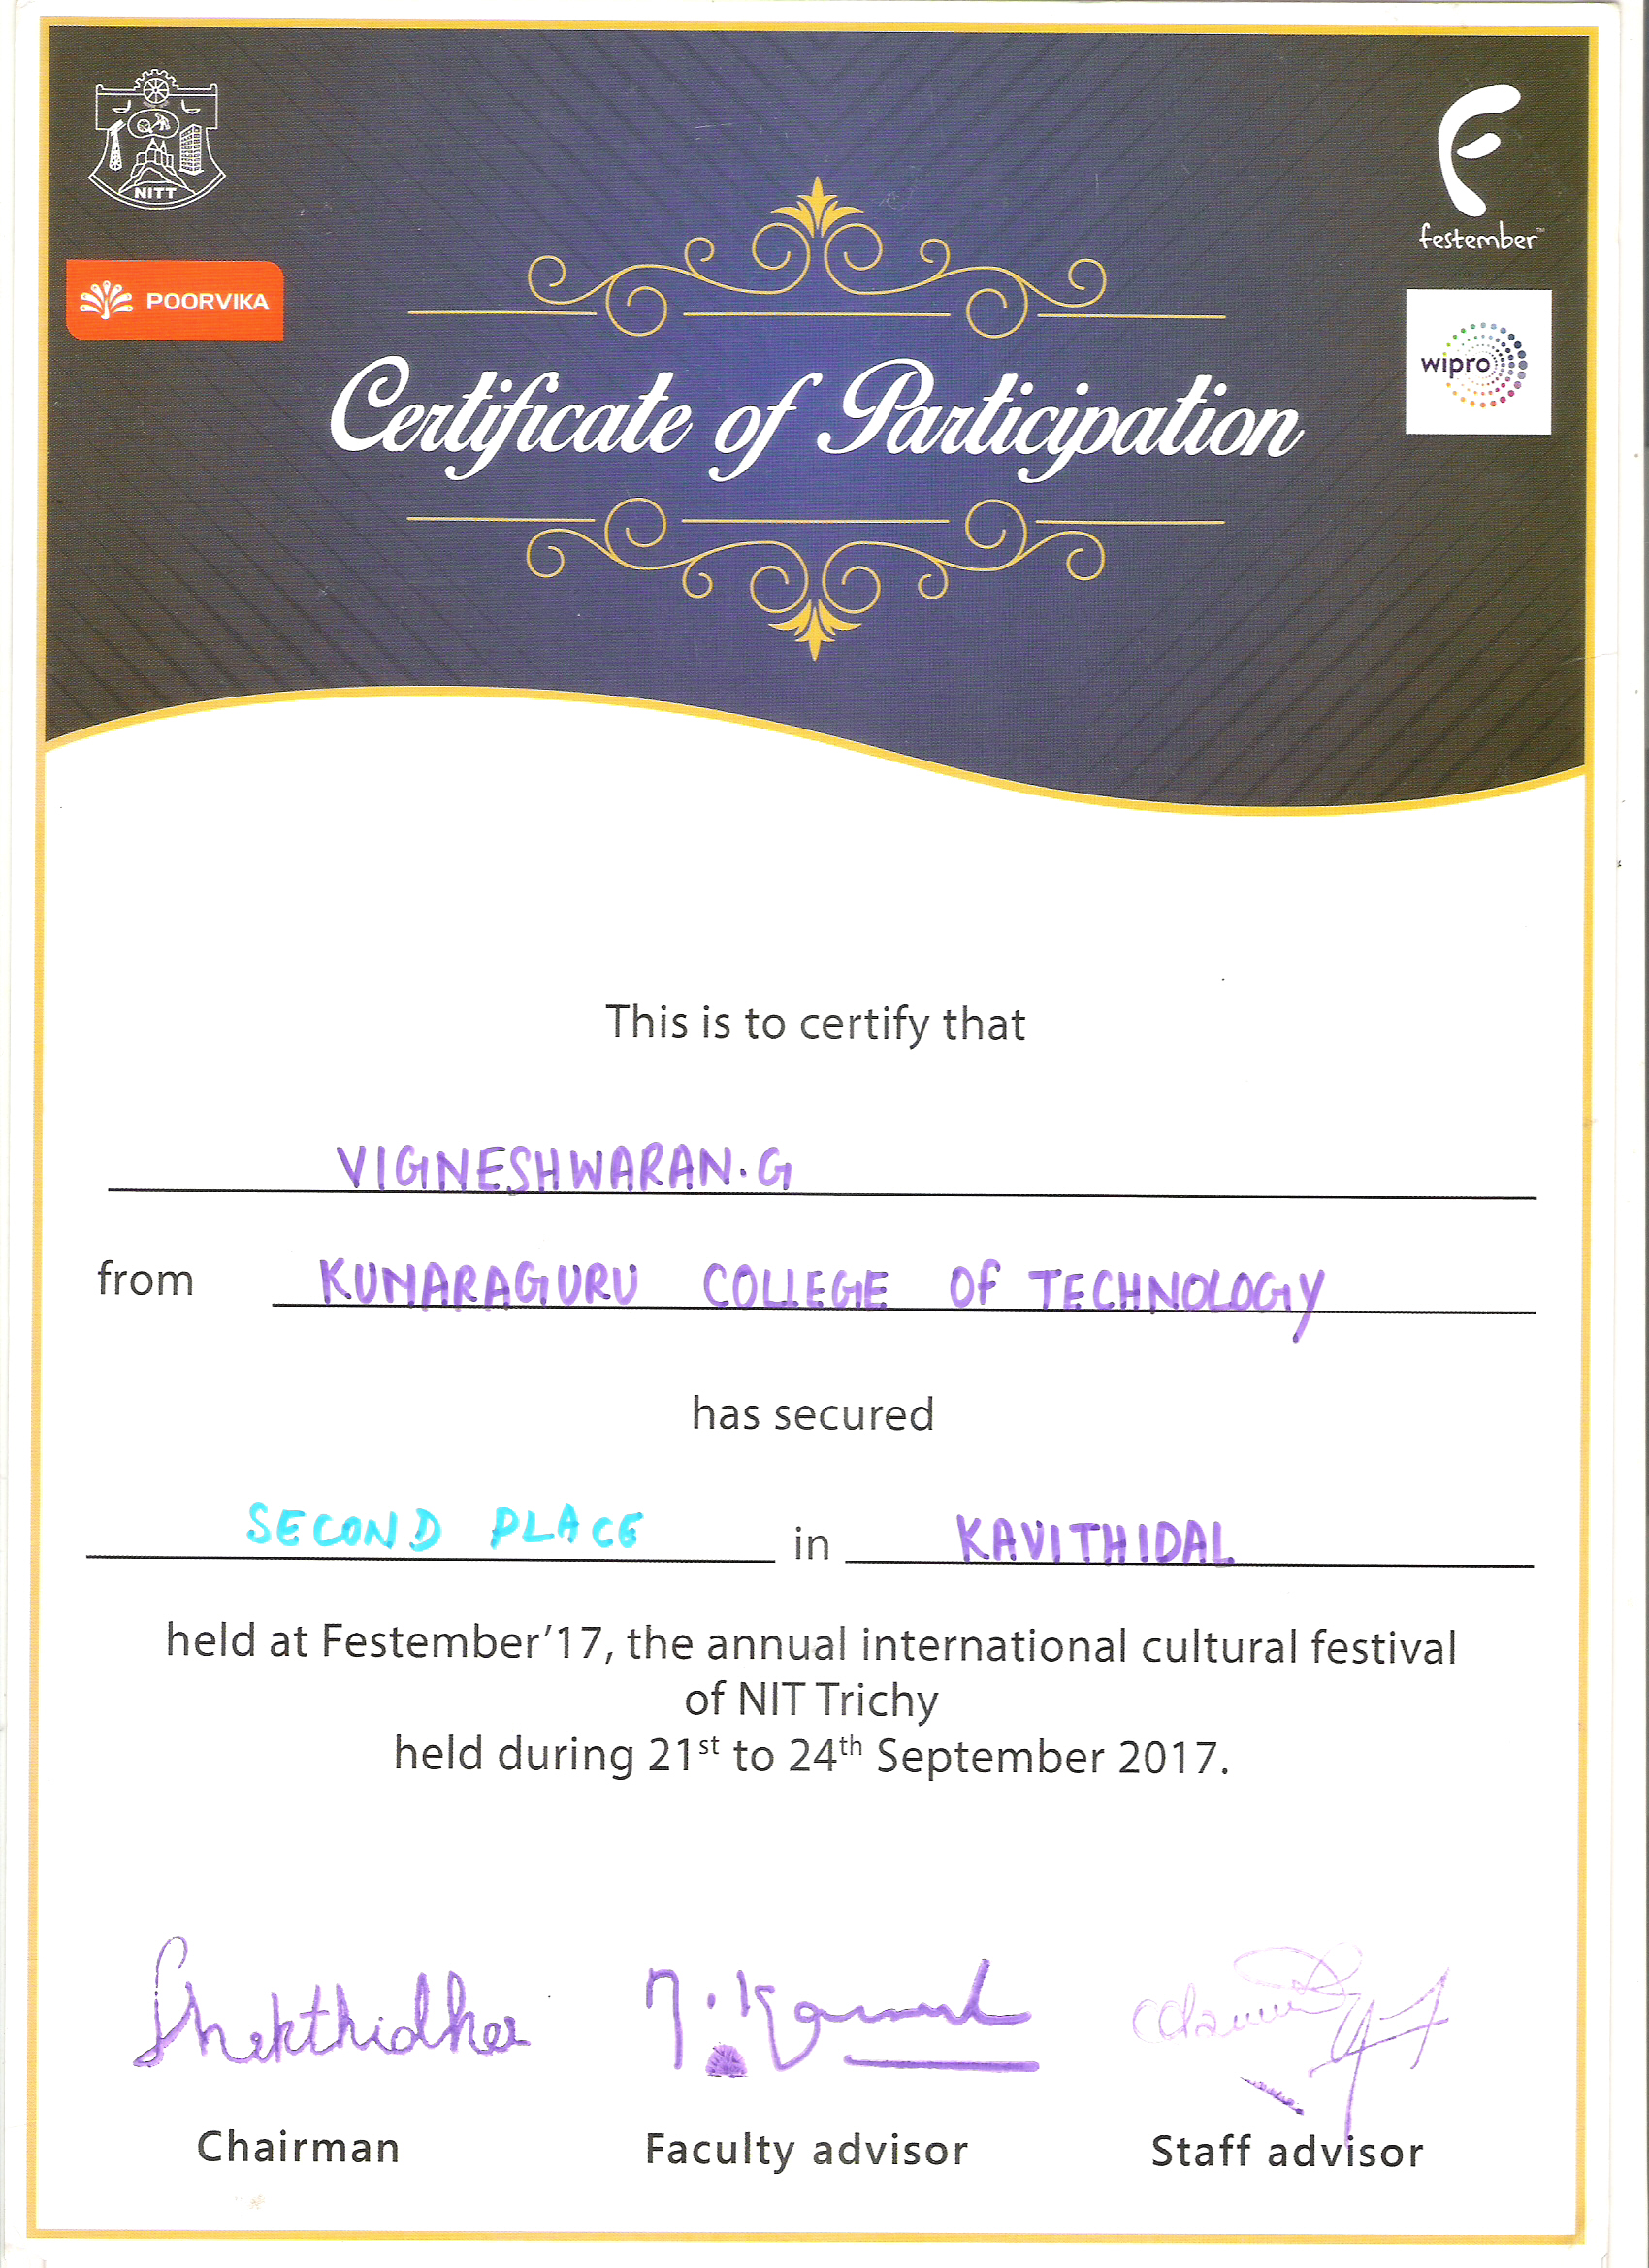 NITT
festember™
POORVIKA
wipro
Certificate of Participation
This is to certify that
VIGNESHWARAN.G
from KUMARAGURU COLLEGE OF TECHNOLOGY
has secured
SECOND PLACE in KAVITHIDAL
held at Festember'17, the annual international cultural festival
of NIT Trichy
held during 21st to 24th September 2017.
Shakthidhar
Chairman Faculty advisor Staff advisor